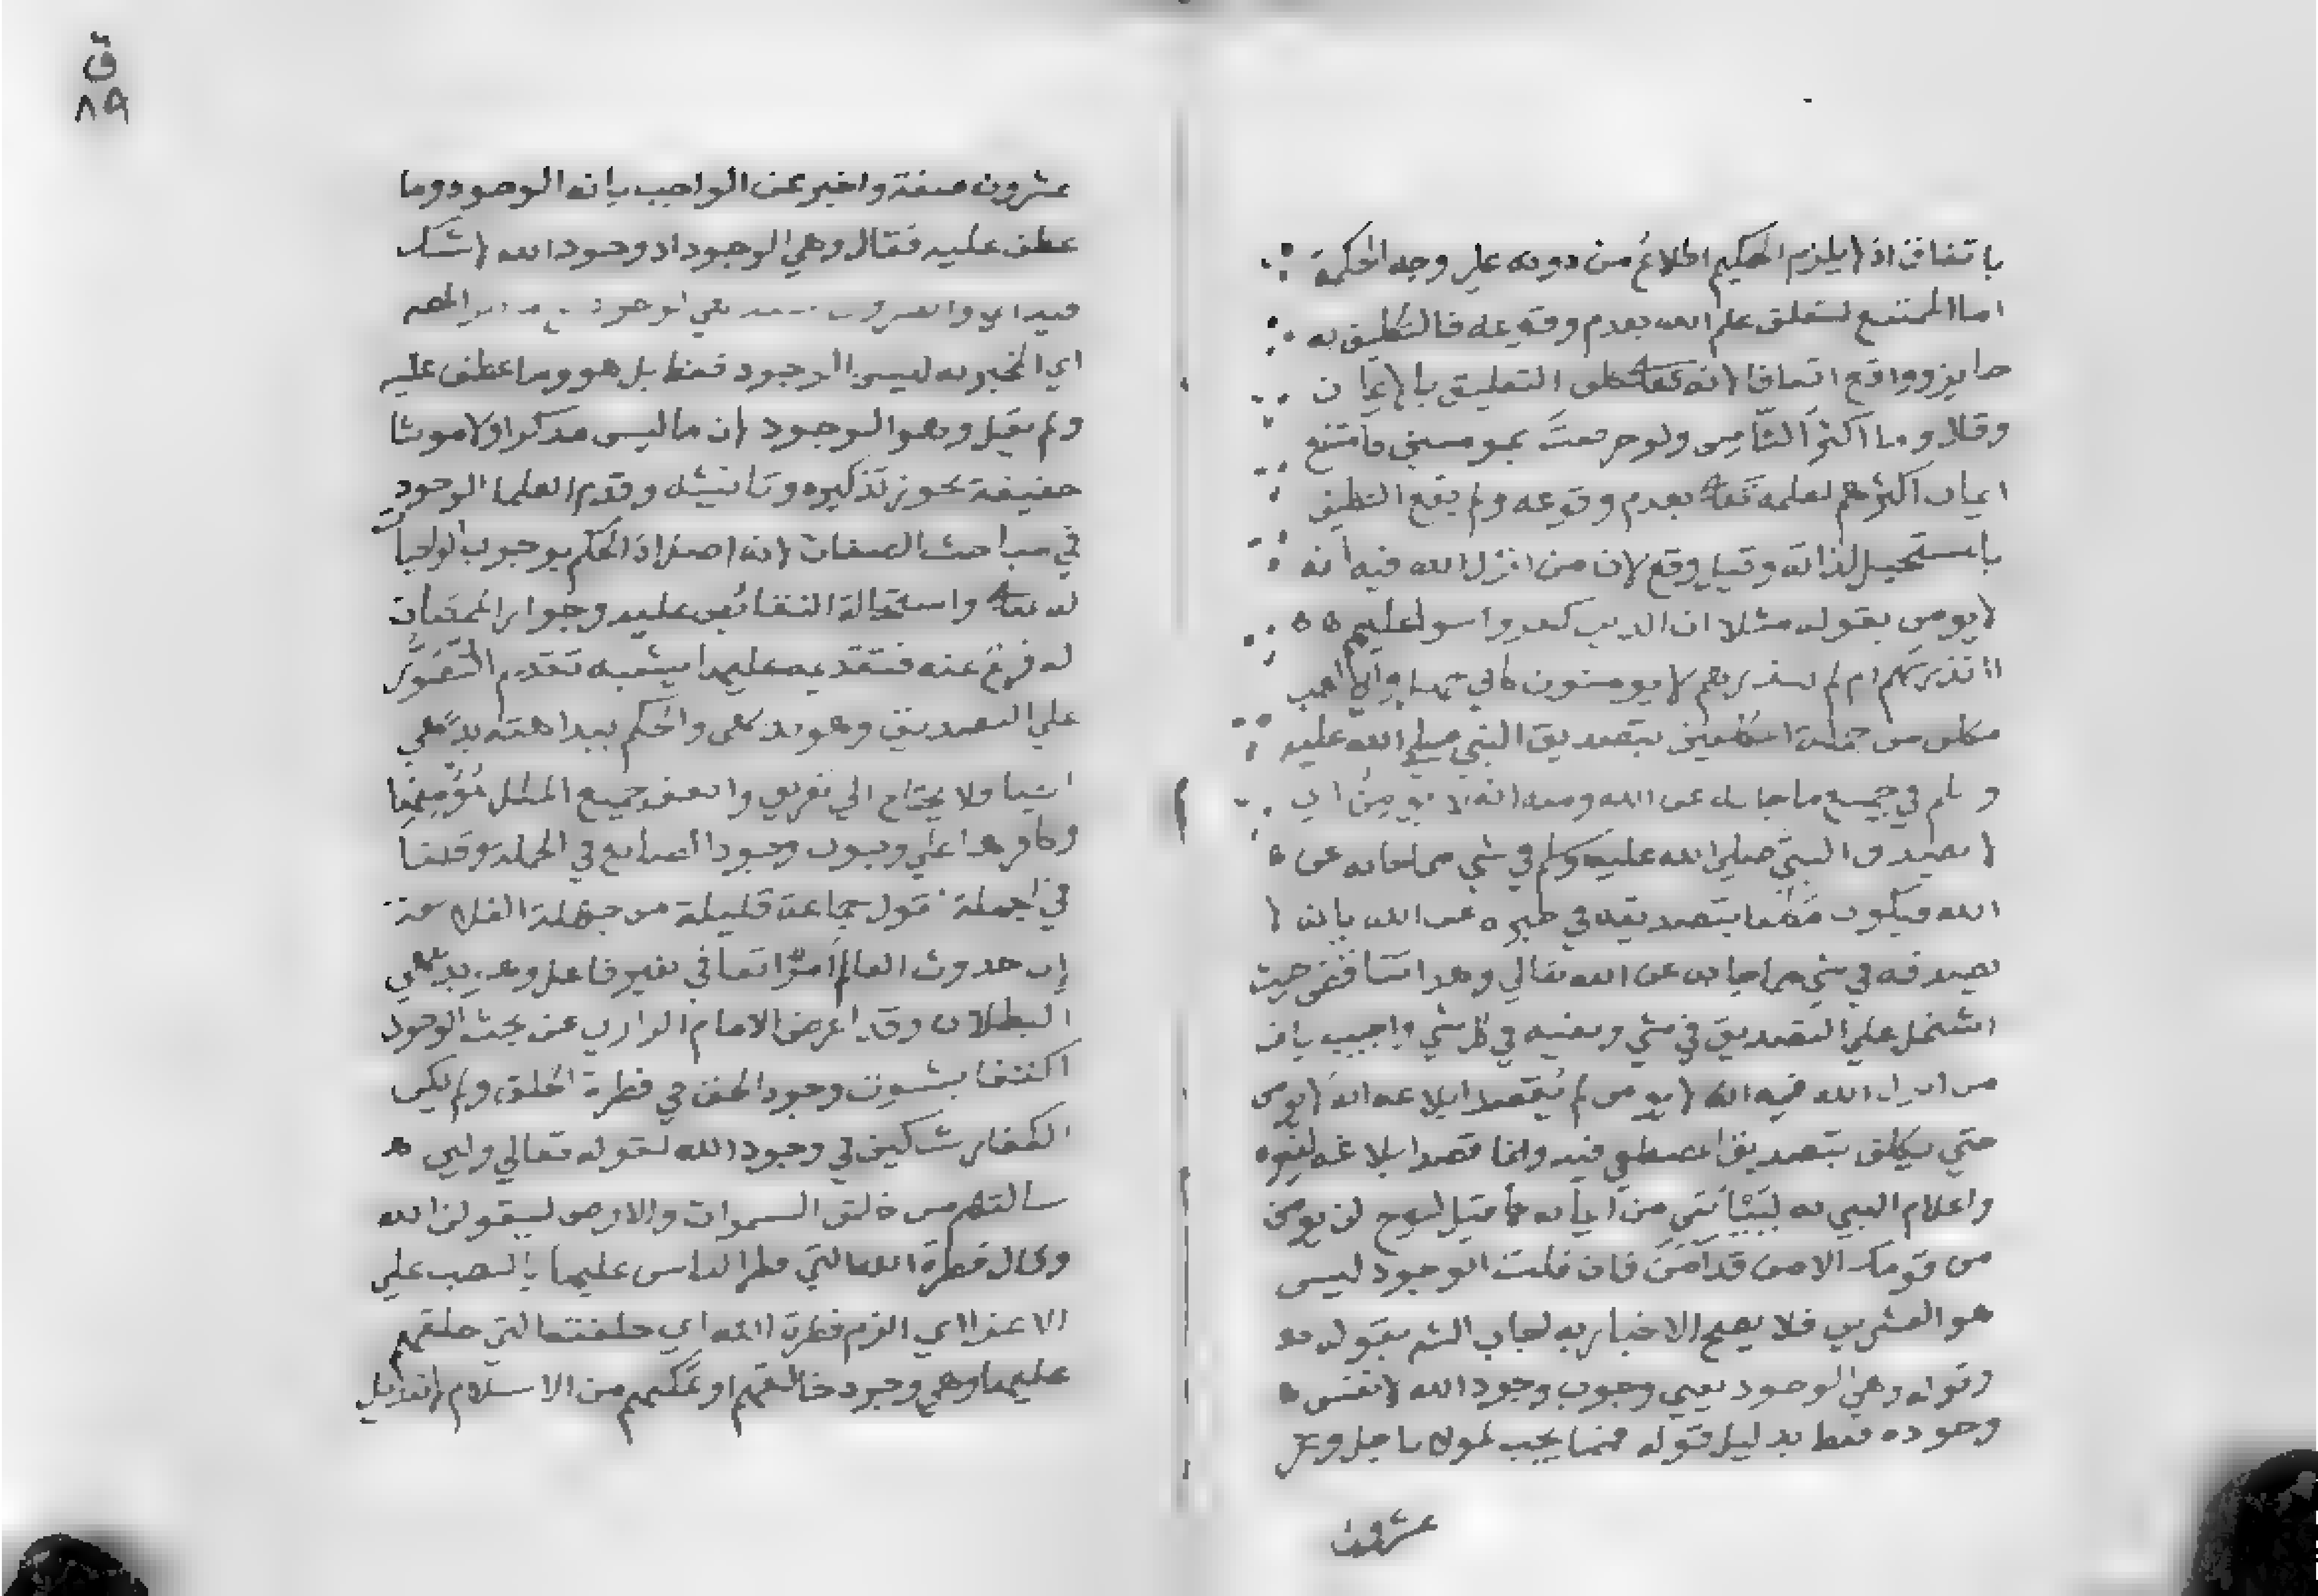 باتفاق اذ لا يلزم الحكيم اطلاع من دونه علي وجه الحكمة
اما الممتنع لتعلق علم الله بعدم وقوعه فالتكليف به
جايز وواقع اتفاقا لانه تعالى كلف الثقلين بالايمان
وقال وما اكثر الناس ولو حرصت بمومنين فامتنع
ايمان اكثرهم لعلمه تعالى بعدم وقوعه ولم يقع التكليف
بالمستحيل لذاته وقيل وقع لان من انزل الله فيه انه
لا يومن بقوله مثلا ان الذين كفروا سوا عليهم
اانذرتهم ام لم تنذرهم لا يومنون كابي جهل وابي لهب
مكلف من جملة المكلفين بتصديق النبي صلي الله عليه
وسلم في جميع ما جا به عن الله ومنه انه لا يومن اي
لا يصدق النبي صلي الله عليه وسلم في شي مما جا به عن
الله فيكون مكلفا بتصديقه في خبره عن الله بانه لا
يصدقه في شي مما جا به عن الله تعالي وهذا تناقض حيث
اشتمل علي التصديق في شي ونفيه في كل شي واجيب بان
من انزل الله فيه انه لا يومن لم يقصد ابلاغه انه لا يومن
حتي يكلف بتصديق المصطفي فيه وانما قصد ابلاغه لغيره
واعلام النبي به ليياس من ايمانه كما قيل لنوح لن يومن
من قومك الا من قد امن فان قلت الوجود ليس
هو العشرين فلا يصح الاخبار به اجاب الشم بقوله
وقوله وهي الوجود يعني وجوب وجود الله لا نفس
وجوده فقط بدليل قوله فمما يجب لمولانا جل وعز
عشرون
ق
٨٩
عشرون صفة واخبر عن الواجب بانه الوجود وما
عطف عليه فقال وهي الوجود اذ وجود الله لا شك
اي المخبر به ليس الوجود فقط بل هو وما عطف عليه
ولم يقل وهو الوجود لان ما ليس مذكرا ولا مونثا
حقيقة يجوز تذكيره وتانيثه وقدم العلما الوجود
في مباحث الصفات لانه اصل اذ الحكم بوجوب الواجبات
له تعالى واستحالة النقائص عليه وجواز الممكنات
له فرع عنه فتقديمه عليها يشبه تقديم التصور
علي التصديق وهو بديهي والحكم ببداهته بديهي
ايضا فلا يحتاج الي تعريف واتفق جميع الملل مؤمنها
وكافرها علي وجوب وجود الصانع في الجملة وقلنا
في الجملة لقول جماعة قليلة من جهلة الفلاسفة
ان حدوث العالم امر اتفاقي بغير فاعل وهو بديهي
البطلان وقد اعرض الامام الرازي عن بحث الوجود
اكتفا بثبوت وجود الحق في فطرة الخلق ولم يكن
الكفار شاكين في وجود الله لقوله تعالي ولين
سالتهم من خلق السموات والارض ليقولن الله
وقال فطرة الله التي فطر الناس عليها بالنصب علي
الاغرا اي الزم فطرة الله اي خلقته التي خلقهم
عليها وهي وجود خالقهم او تمكنهم من الاسلام